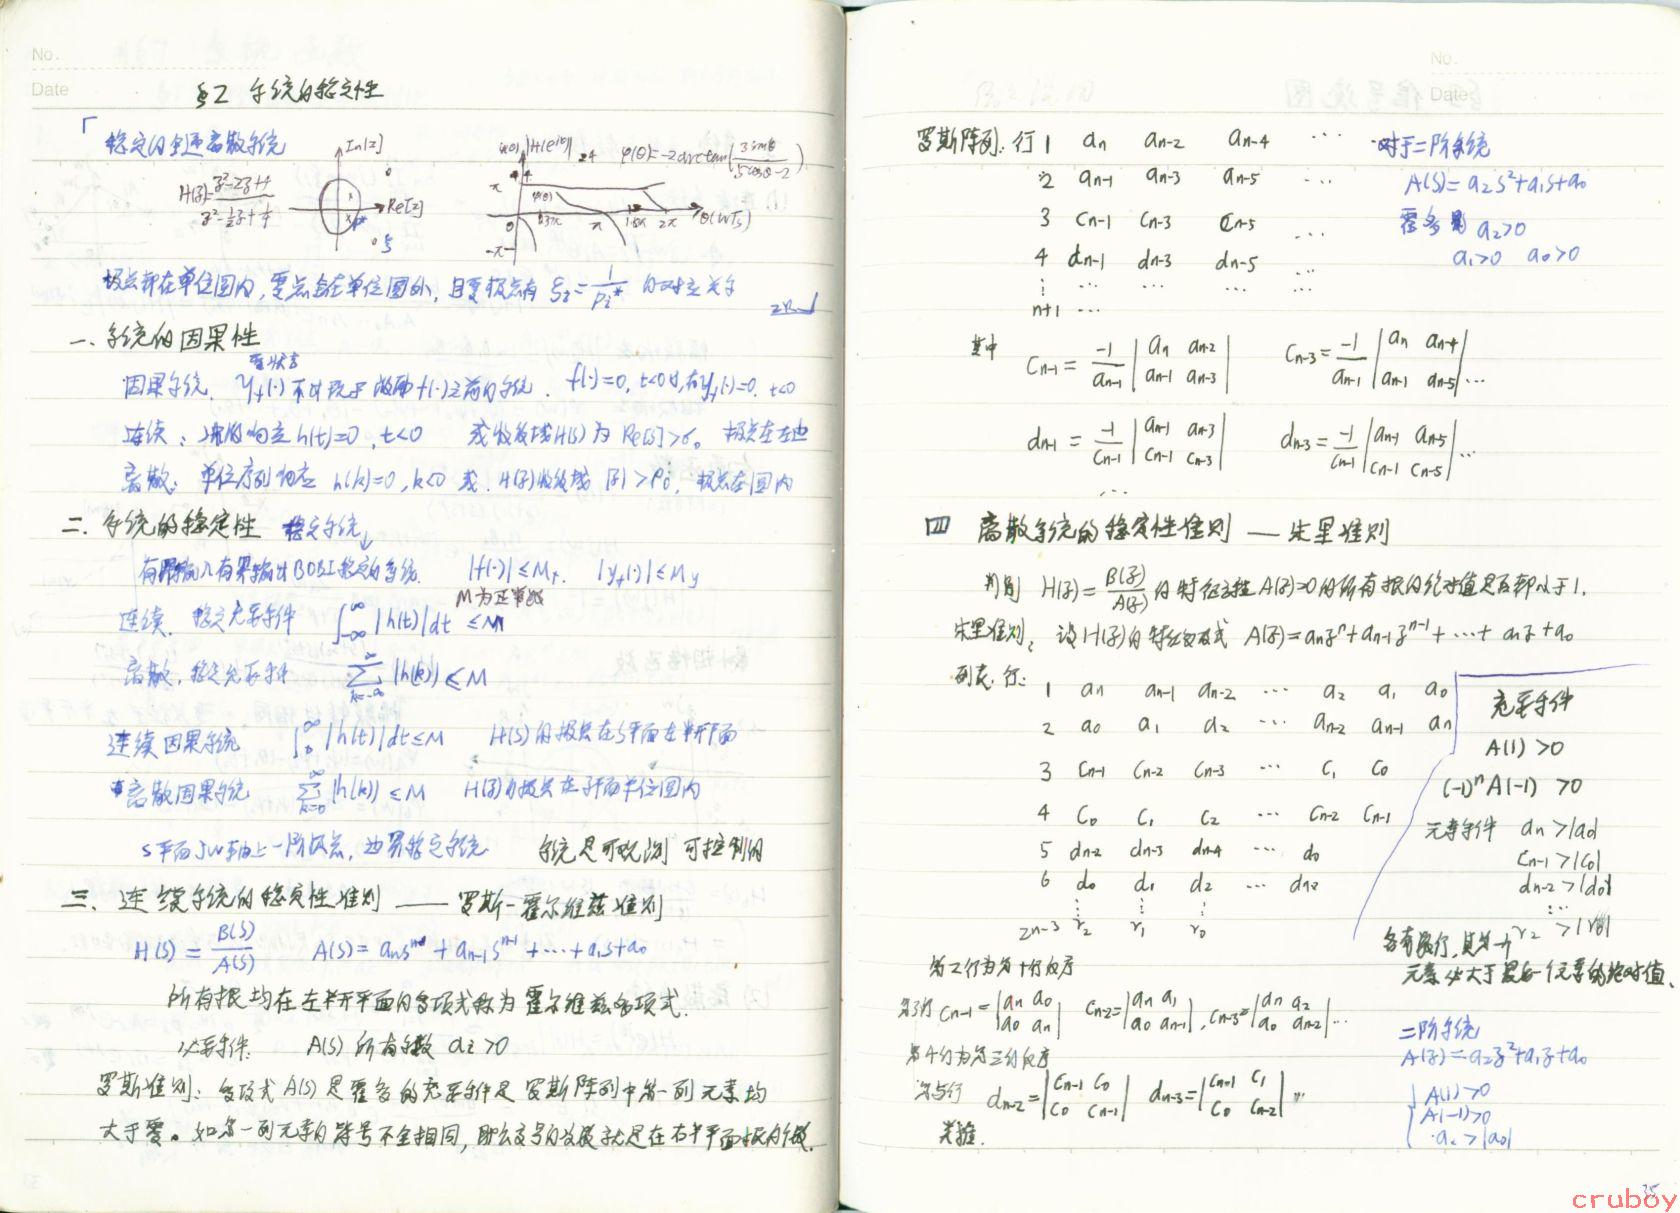 No.
Date
§2 系统的稳定性
稳定的全通离散系统
H(z)=(z²-2z+4)/(z²-½z+¼)
Im[z]
Re[z]
|H(e^{jθ})|
φ(θ)=-2arctan(3sinθ/(5cosθ-2))
φ(θ)
π
4
0
-π
π
2π
θ(ωTs)
极点都在单位圆内,零点全在单位圆外,且零极点有 ξi=1/pi* 的对应关系
一、系统的因果性
零状态
因果系统 yf(·)不出现于激励f(·)之前的系统. f(·)=0, t<0时,有yf(·)=0, t<0
连续:冲激响应 h(t)=0, t<0 或收敛域H(s)为 Re[s]>σ0 极点在左边
离散:单位序列响应 h(k)=0, k<0 或 H(z)收敛域 |z|>ρ0, 极点在圆内
二、系统的稳定性 稳定系统
有界输入有界输出BOBI稳定的系统. |f(·)|≤Mf |yf(·)|≤My
M为正常数
连续. 稳定充要条件 ∫_{-∞}^{∞}|h(t)|dt ≤M
离散,稳定充要条件 Σ_{k=-∞}^{∞}|h(k)| ≤M
连续因果系统 ∫_0^∞|h(t)|dt≤M H(s)的极点在s平面左半开平面
离散因果系统 Σ_{k=0}^∞|h(k)| ≤M H(z)的极点在z平面单位圆内
s平面jw轴上一阶极点,边界稳定系统 系统是可观测 可控制的
三、连续系统的稳定性准则 —— 罗斯-霍尔维兹准则
H(s)=B(s)/A(s) A(s)=aₙsⁿ+aₙ₋₁sⁿ⁻¹+⋯+a₁s+a₀
所有根均在左半开平面的多项式称为霍尔维兹多项式.
必要条件: A(s)所有系数 ai>0
罗斯准则:多项式A(s)是霍多的充要条件是罗斯阵列中第一列元素均
大于零。如第一列元素的符号不全相同,即么变号的次数就是在右半平面根的个数.
No.
Date
罗斯阵列: 行 1 aₙ aₙ₋₂ aₙ₋₄ ⋯
2 aₙ₋₁ aₙ₋₃ aₙ₋₅ ⋯
3 cₙ₋₁ cₙ₋₃ cₙ₋₅ ⋯
4 dₙ₋₁ dₙ₋₃ dₙ₋₅ ⋯
⋮ ⋯ ⋯ ⋯
n+1 ⋯
对于二阶系统
A(s)=a₂s²+a₁s+a₀
霍多 a₂>0
a₁>0 a₀>0
其中 cₙ₋₁ = -1/aₙ₋₁ |aₙ aₙ₋₂; aₙ₋₁ aₙ₋₃| cₙ₋₃ = -1/aₙ₋₁ |aₙ aₙ₋₄; aₙ₋₁ aₙ₋₅| ⋯
dₙ₋₁ = -1/cₙ₋₁ |aₙ₋₁ aₙ₋₃; cₙ₋₁ cₙ₋₃| dₙ₋₃ = -1/cₙ₋₁ |aₙ₋₁ aₙ₋₅; cₙ₋₁ cₙ₋₅| ⋯
⋯
四 离散系统的稳定性准则 —— 朱里准则
判别 H(z)=B(z)/A(z) 的特征方程A(z)=0的所有根的绝对值是否都小于1.
朱里准则, 设H(z)的特征多项式 A(z)=aₙzⁿ+aₙ₋₁zⁿ⁻¹+⋯+a₁z+a₀
列表:行:
1 aₙ aₙ₋₁ aₙ₋₂ ⋯ a₂ a₁ a₀
2 a₀ a₁ a₂ ⋯ aₙ₋₂ aₙ₋₁ aₙ
3 cₙ₋₁ cₙ₋₂ cₙ₋₃ ⋯ c₁ c₀
4 c₀ c₁ c₂ ⋯ cₙ₋₂ cₙ₋₁
5 dₙ₋₂ dₙ₋₃ dₙ₋₄ ⋯ d₀
6 d₀ d₁ d₂ ⋯ dₙ₋₂
⋮ ⋮ ⋮
2n-3 r₂ r₁ r₀
充要条件
A(1)>0
(-1)ⁿA(-1)>0
元素条件 aₙ>|a₀|
cₙ₋₁>|c₀|
dₙ₋₂>|d₀|
⋮
r₂>|r₀|
各奇数行,其第一个
元素必大于最后一个元素的绝对值.
第2行为第1行反序
第3行 cₙ₋₁=|aₙ a₀; a₀ aₙ| cₙ₋₂=|aₙ a₁; a₀ aₙ₋₁|, cₙ₋₃=|aₙ a₂; a₀ aₙ₋₂| ⋯
第4行为第三行反序
第5行 dₙ₋₂=|cₙ₋₁ c₀; c₀ cₙ₋₁| dₙ₋₃=|cₙ₋₁ c₁; c₀ cₙ₋₂| ⋯
类推.
二阶系统
A(z)=a₂z²+a₁z+a₀
A(1)>0
A(-1)>0
a₂>|a₀|
35
cruboy